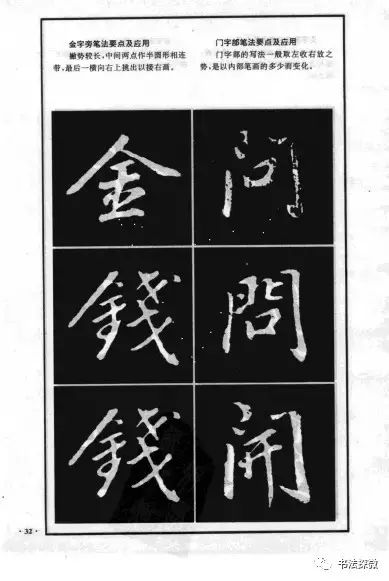 金字旁笔法要点及应用
撇势较长，中间两点作半圆形相连
带，最后一横向右上挑出以接右画。
门字部笔法要点及应用
门字部的写法一般取左收右放之
势，是以内部笔画的多少而变化。
金
問
錢
問
錢
開
·32·
书法探微